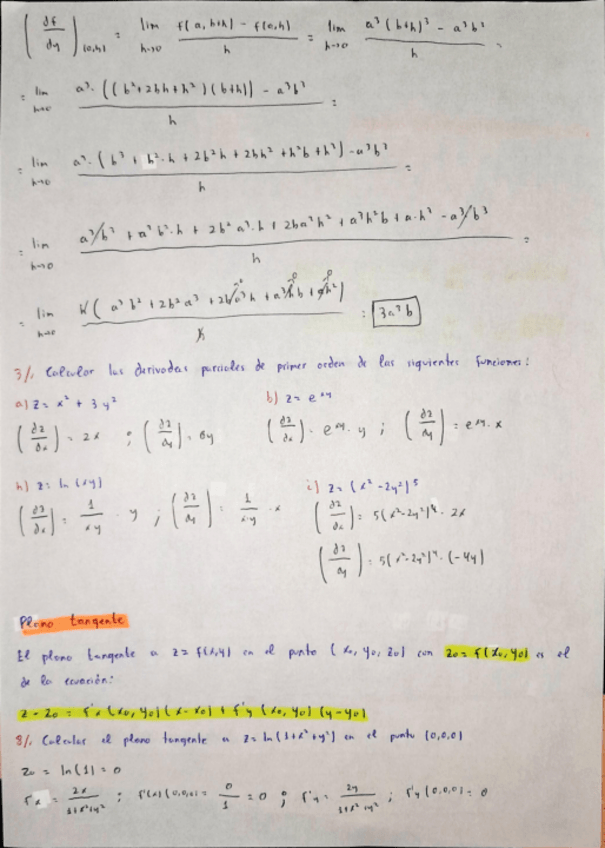 (df/dy)(a,b) = lim h→0 f(a, b+h) - f(a,b) / h = lim h→0 a³(b+h)³ - a³b³ / h =
= lim h→0 a³·((b²+2bh+h²)(b+h)) - a³b³ / h =
= lim h→0 a³·(b³ + b²·h + 2b²h + 2bh² + h²b + h³) - a³b³ / h =
= lim h→0 a³b³ + a³b²·h + 2b²a³·h + 2ba³h² + a³h²b + a·h³ - a³b³ / h =
= lim h→0 h(a³b² + 2b²a³ + 2ba³h + a³hb + ah²) / h = 3a³b
3/. Calcular las derivadas parciales de primer orden de las siguientes funciones:
a) z = x² + 3y² b) z = e^xy
(∂z/∂x) = 2x ; (∂z/∂y) = 6y (∂z/∂x) = e^xy · y ; (∂z/∂y) = e^xy · x
h) z = ln(xy) i) z = (x² - 2y²)⁵
(∂z/∂x) = 1/xy · y ; (∂z/∂y) = 1/x·y · x (∂z/∂x) = 5(x²-2y²)⁴ · 2x
(∂z/∂y) = 5(x²-2y²)⁴ · (-4y)
Plano tangente
El plano tangente a z = f(x,y) en el punto (x₀, y₀, z₀) con z₀ = f(x₀, y₀) es el
de la ecuación:
z - z₀ = f'x(x₀, y₀)(x - x₀) + f'y(x₀, y₀)(y - y₀)
8/. Calcular el plano tangente a z = ln(1+x²+y²) en el punto (0,0,0)
z₀ = ln(1) = 0
f'x = 2x/1+x²+y² ; f'(x)(0,0,0) = 0/1 = 0 ; f'y = 2y/1+x²+y² ; f'y(0,0,0) = 0